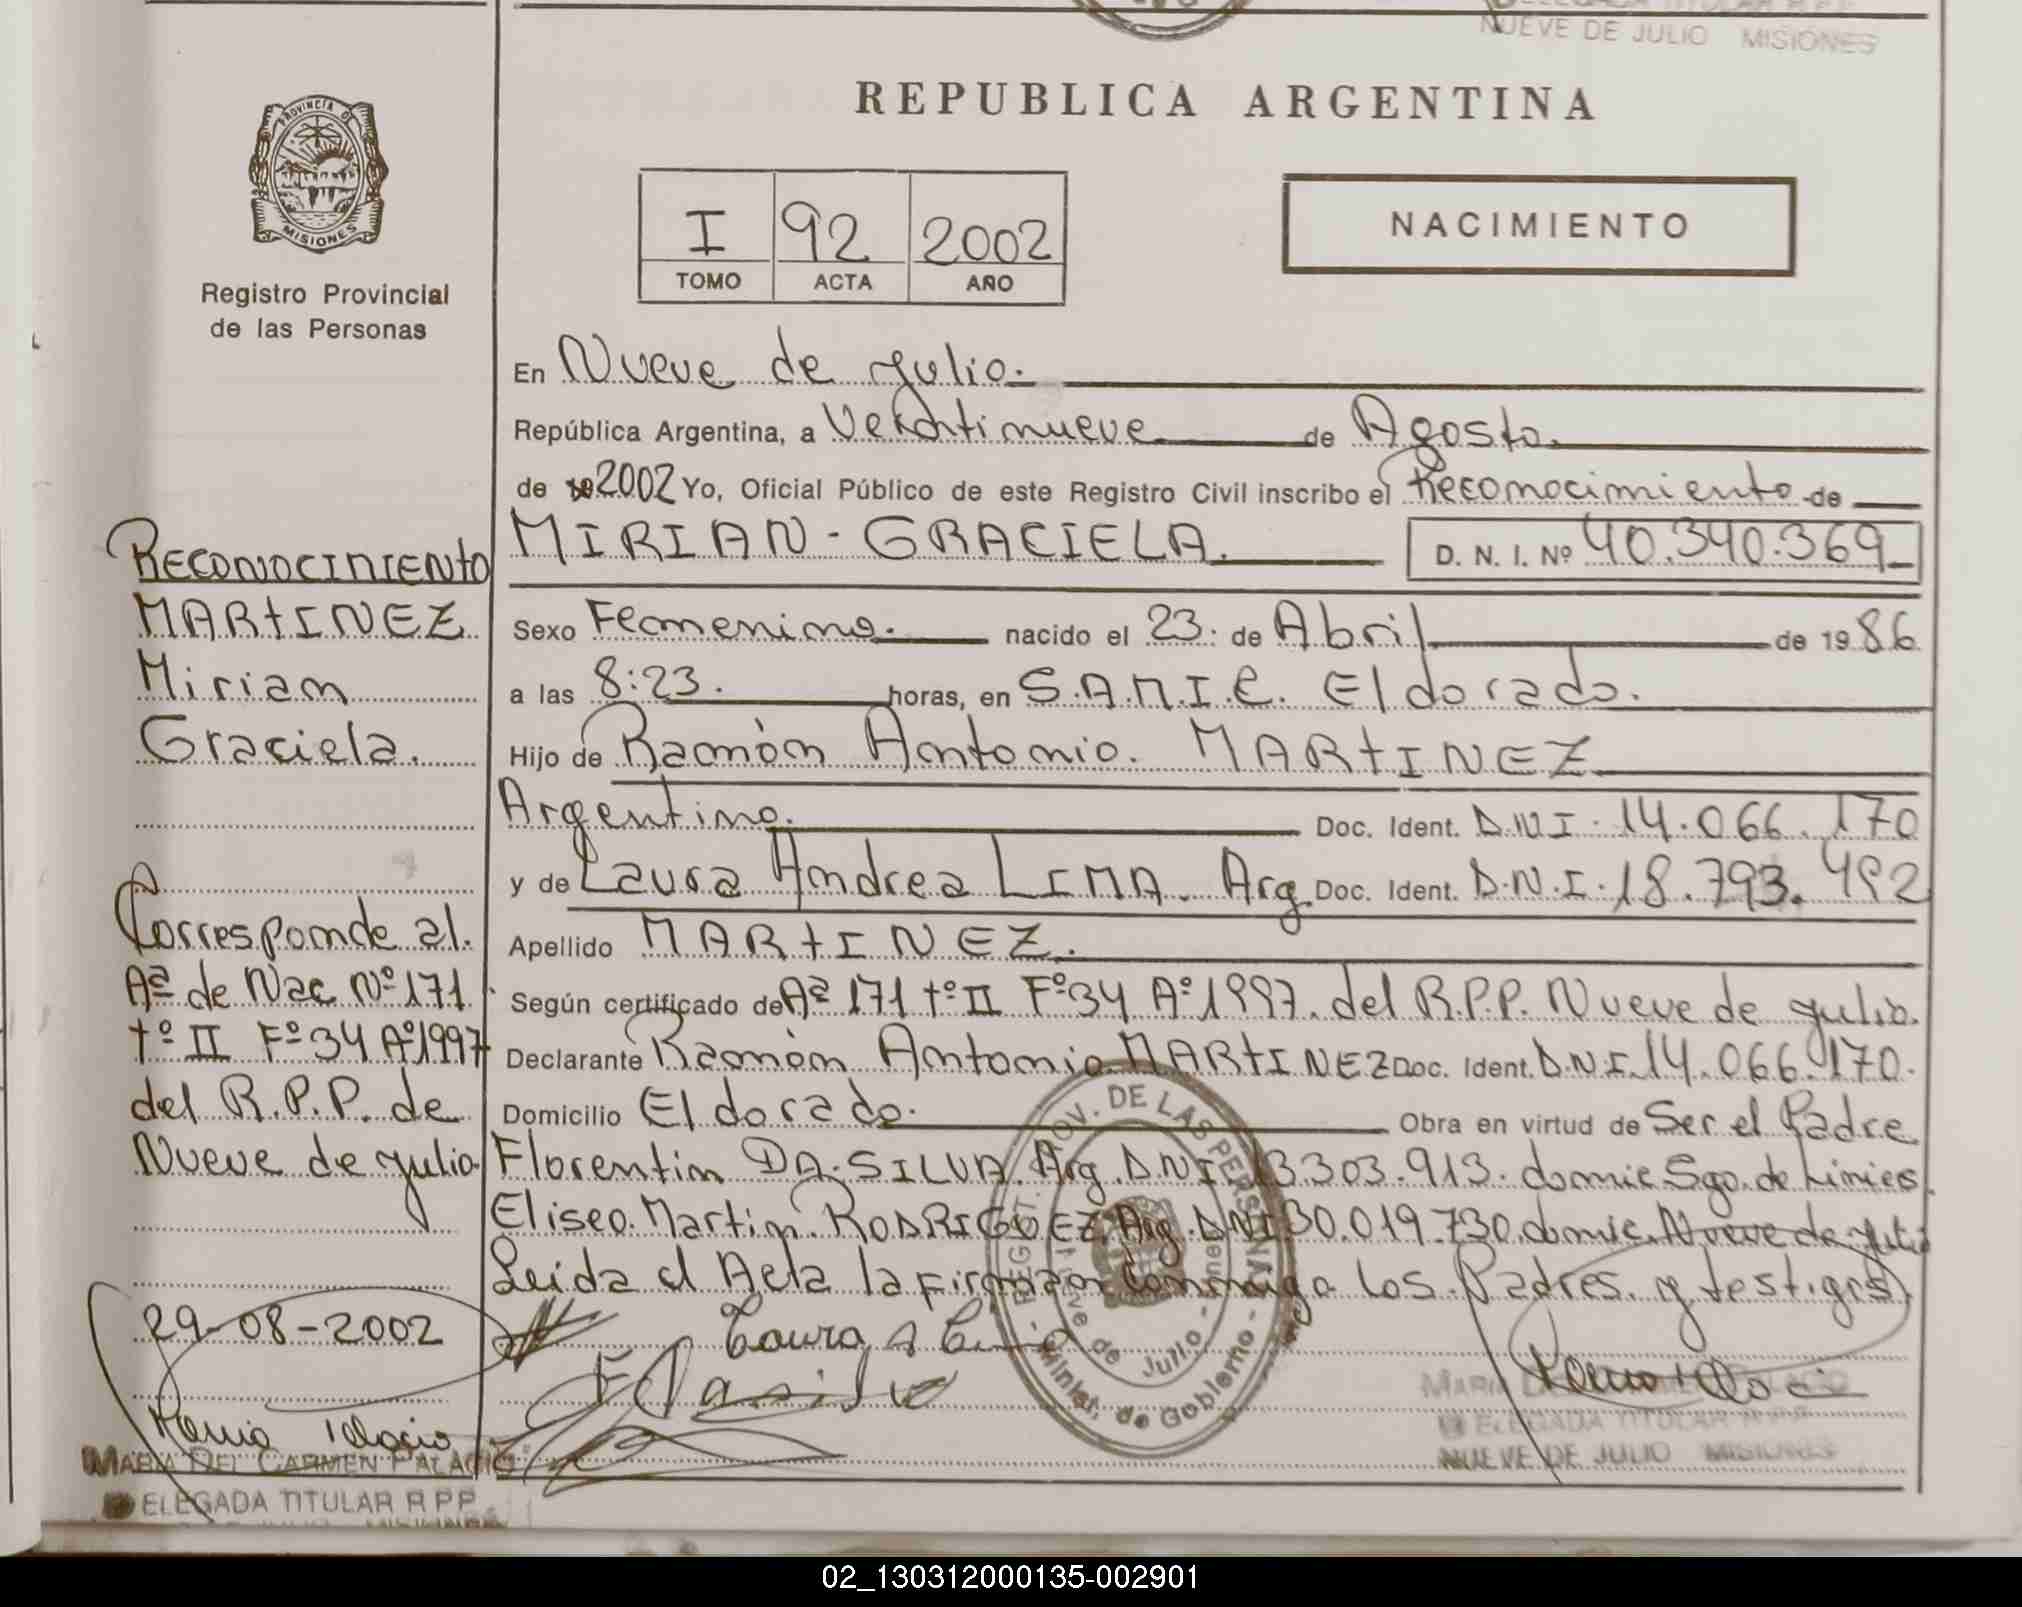 NUEVE DE JULIO MISIONES
PROVINCIA DE
MISIONES
Registro Provincial
de las Personas
REPUBLICA ARGENTINA
I 92 2002
TOMO ACTA AÑO
NACIMIENTO
En Nueve de Julio.
República Argentina, a Veintinueve de Agosto.
de 2002 Yo, Oficial Público de este Registro Civil inscribo el Reconocimiento de
MIRIAN - GRACIELA. D. N. I. Nº 40.340.369
Sexo Femenino. nacido el 23: de Abril de 1986
a las 8:23. horas, en S.A.M.I.C. Eldorado.
Hijo de Ramón Antonio. MARTINEZ
Argentino. Doc. Ident. D.N.I. 14.066.170
y de Laura Andrea LIMA. Arg. Doc. Ident. D.N.I. 18.793.492
Apellido MARTINEZ.
Según certificado de Aª 171 tº II Fº 34 Aº 1997. del R.P.P. Nueve de Julio.
Declarante Ramón Antonio MARTINEZ Doc. Ident. D.N.I. 14.066.170.
Domicilio Eldorado. Obra en virtud de Ser el Padre
Florentin DA-SILVA. Arg. D.N.I. 13.303.913. domic. Sgo. de Liniers.
Eliseo. Martin. RODRIGUEZ. Arg. DNI 30.019.730. domic. Nueve de Julio
Leida el Acta la firman conmigo los Padres y testigos
RECONOCIMIENTO
MARTINEZ
Miriam
Graciela.
Corresponde al.
Aª de Nac Nº 171
tº II Fº 34 Aº 1997
del R.P.P. de
Nueve de Julio
29-08-2002
MARIA DEL CARMEN PALACIO
DELEGADA TITULAR R P P
REGIST. PROV. DE LAS PERSONAS
Nueve de Julio - Misiones
Minist. de Gobierno
DELEGADA TITULAR R P P
NUEVE DE JULIO MISIONES
02_130312000135-002901